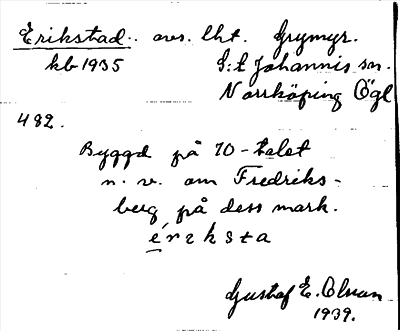 Erikstad. avs. lht. Grymyr.
kb 1935 S:t Johannis sn.
Norrköping Ögl
482.
Byggd på 70-talet
n. v. om Fredriks-
berg på dess mark.
Gustaf E. Olsson
1939.